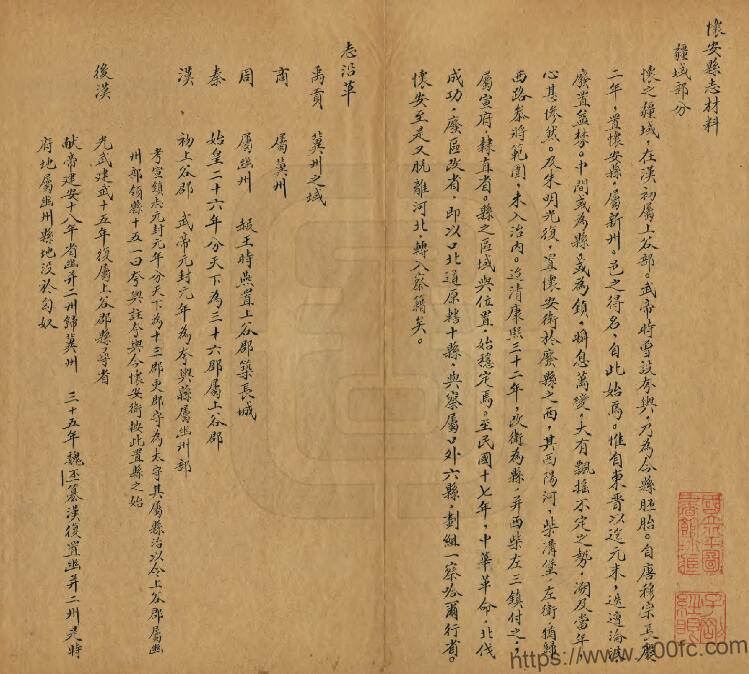 懷安縣志材料
疆域部分
懷之疆域,在漢初屬上谷部。武帝時曾設夸輿,乃為今縣胚胎。自唐穆宗長慶
二年,置懷安縣,屬新州。邑之得名,自此始焉。惟自東晋以迄元末,迭遭淪沒
廢置益棼。中間或為縣,或為鎮,瞬息萬變,大有飄搖不定之勢,溯及當年,
心甚慘然。及朱明光復,置懷安衛於廢縣之西,其西陽河,柴溝堡,左衛猶歸
西路叅將範圍,未入治內。迨清康熙三十二年,改衛為縣,并西柴左三鎮付之,
屬宣府,隸直省。縣之區域與位置,始穩定焉。至民國十七年,中華革命,北伐
成功,廢區改省,即以口北道原轄十縣,與察屬口外六縣,劃組一察哈爾行省。
懷安至是又脫離河北,轉入察籍矣。
志沿革
禹貢 冀州之域
商 屬冀州
周 屬幽州 赧王時燕置上谷郡築長城
秦 始皇二十六年分天下為三十六郡屬上谷郡
漢 初上谷郡 武帝元封元年為夸輿縣屬幽州部
考宣鎮志元封元年分天下為十三部更郡守為太守其屬縣治以今上谷郡屬幽
州部領縣十五一曰夸輿註夸輿今懷安衛按此置縣之始
後漢 光武建武十五年復屬上谷郡縣尋省
獻帝建安十八年省幽并二州歸冀州 三十五年魏丕篡漢復置幽并二州是時
府地屬幽州縣地沒於匈奴
https://www.